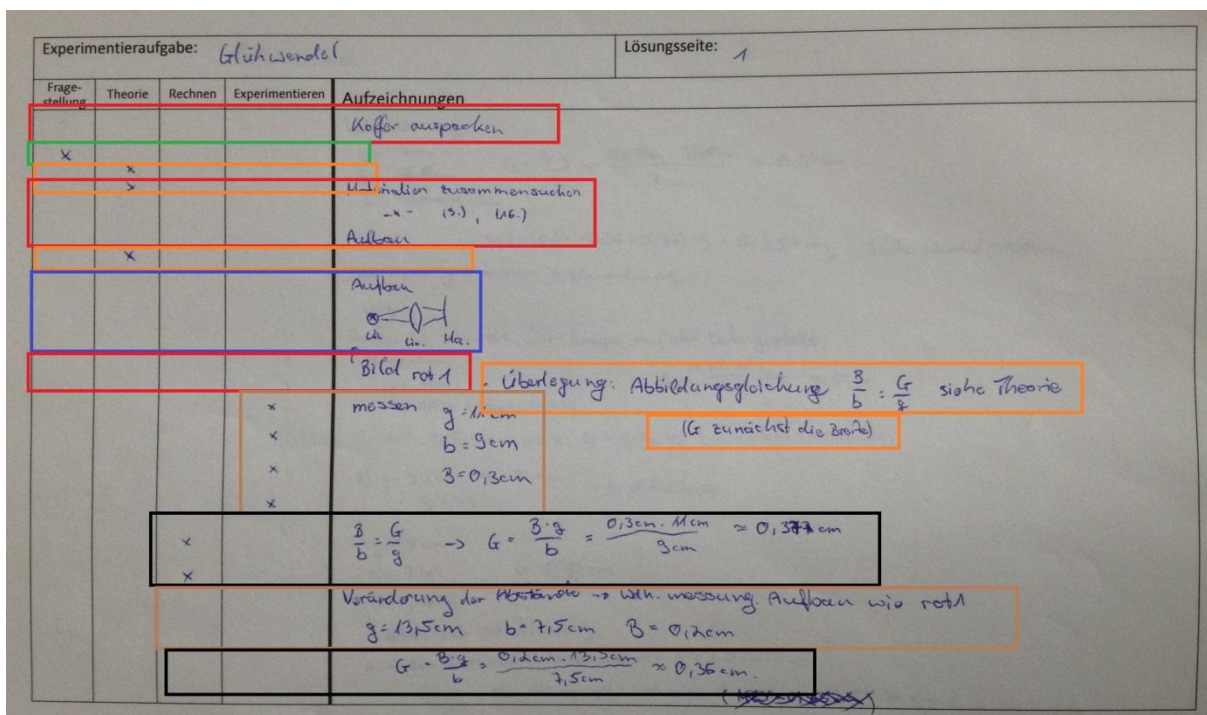 Experimentieraufgabe: Glühwendel
Lösungsseite: 1
Frage-stellung Theorie Rechnen Experimentieren Aufzeichnungen
Koffer auspacken
x
x
x Materialien zusammensuchen
-"- (3.), (16.)
Aufbau
x
Aufbau
Lin. Ma.
Bild rot 1
Überlegung: Abbildungsgleichung B/b = G/g siehe Theorie
(G zunächst die Breite)
x messen g = 11cm
x b = 9cm
x B = 0,3cm
x
x B/b = G/g -> G = B·g/b = 0,3cm · 11cm / 9cm ≈ 0,37 cm
x
Veränderung der Abstände -> Wdh. messung. Aufbau wie rot1
g = 13,5cm b = 7,5cm B = 0,2cm
G = B·g/b = 0,2cm · 13,5cm / 7,5cm ≈ 0,36 cm.